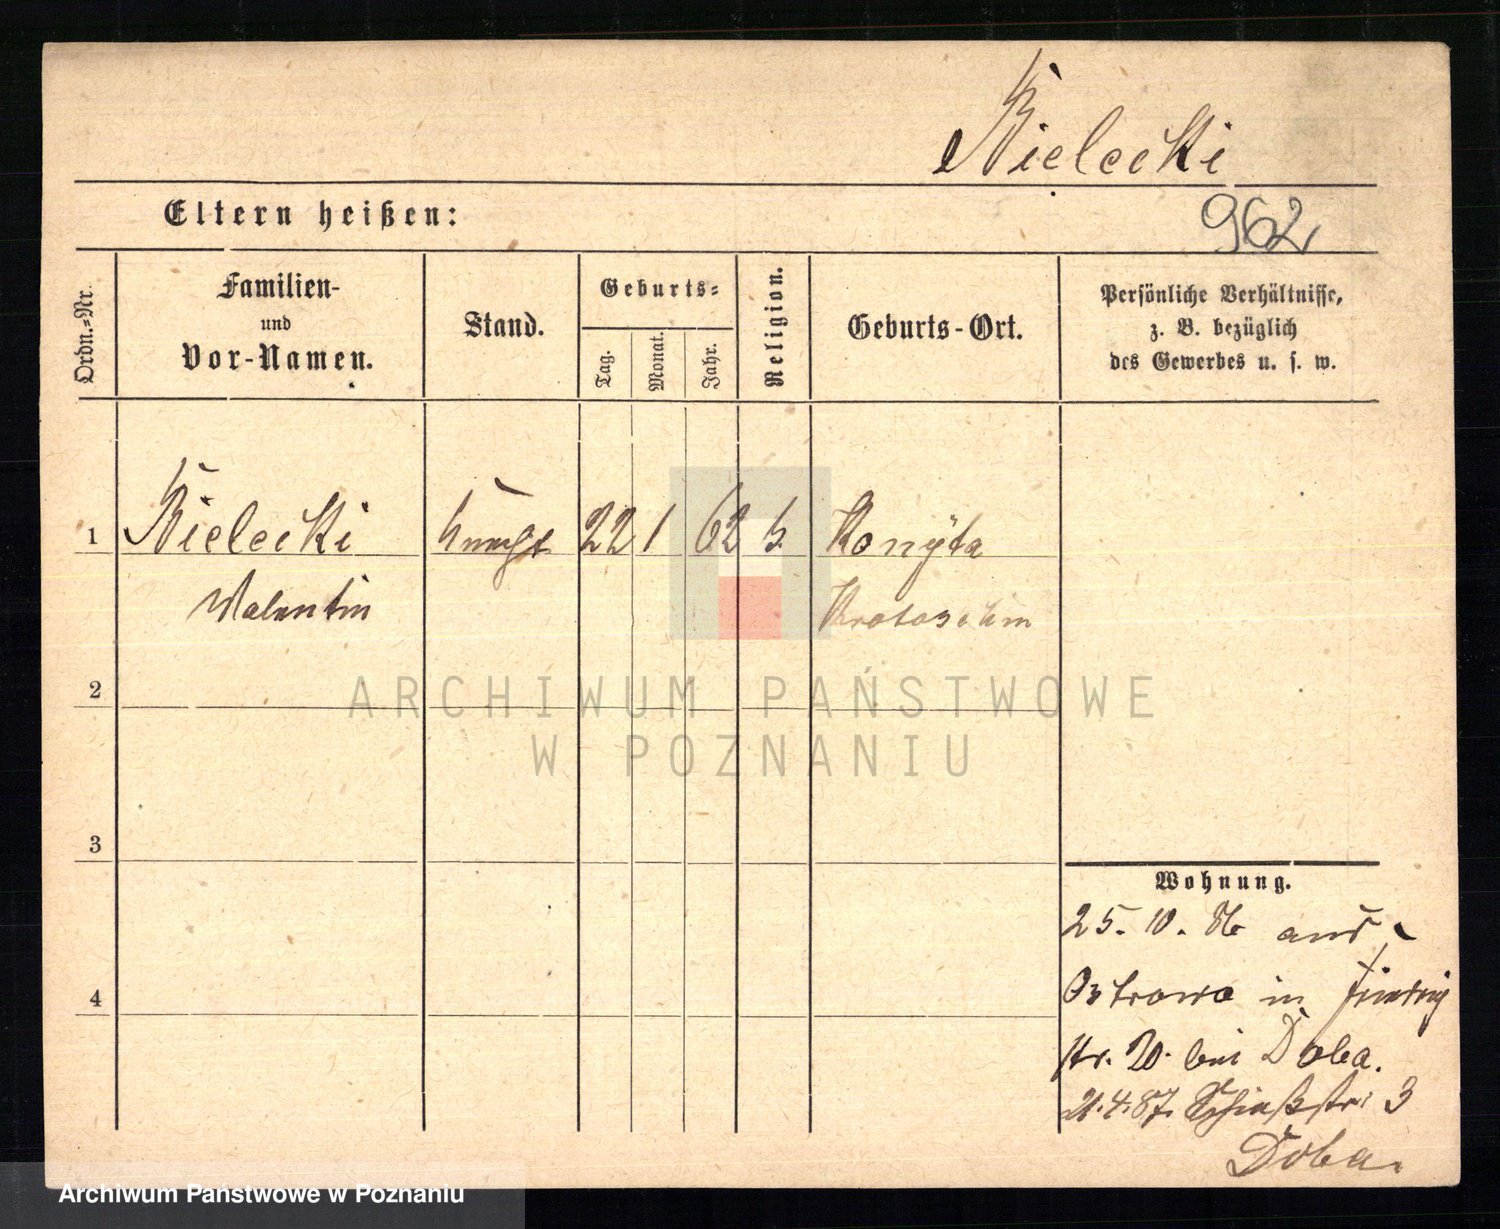 Bielecki
Eltern heißen:
962
Ordn.-Nr.
Familien-
und
Vor-Namen.
Stand.
Geburts-
Tag.
Monat.
Jahr.
Religion.
Geburts-Ort.
Persönliche Verhältnisse,
z. B. bezüglich
des Gewerbes u. s. w.
1 Bielecki 22 1 62 k. Konyta
Valentin Krotoschin
ARCHIWUM PAŃSTWOWE
W POZNANIU
2
3
4
Wohnung.
25. 10. 86 aus
Ostrowo in
str. 20. bei Doba.
21.4.87. Schießstr. 3
Doba.
Archiwum Państwowe w Poznaniu